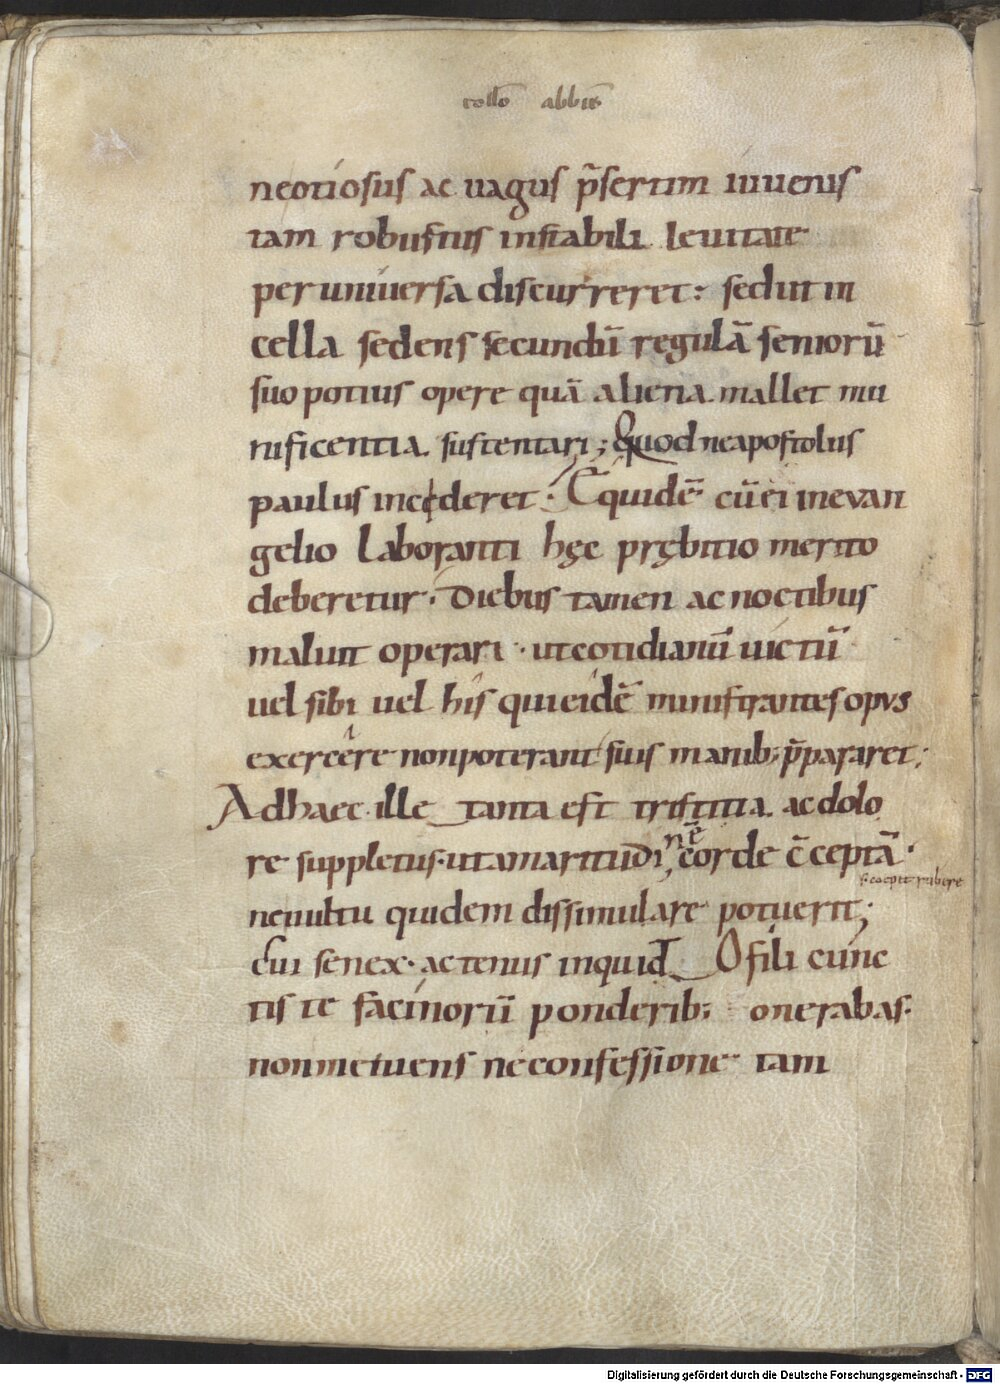 collo abbis
ne otiosus ac vagus p̄sertim iuvenis
tam robustus instabili levitate
per universa discurreret: sed ut in
cella sedens secundū regulā seniorū
suo potius opere quā aliena mallet mu
nificentia. sustentari; Quod ne apostolus
paulus incederet. Et quidē cū ei in evan
gelio laboranti hęc prębitio merito
deberetur. Diebus tamen ac noctibus
maluit operari. ut cotidianū uictū
uel sibi uel his qui eidē ministrantes opus
exercere non poterant suis manib; p̄pararet;
Ad haec ille tanta est tristitia. ac dolo
re suppletus. ut amaritudinē corde c̄ceptā.
s. coepit rubere
ne uultu quidem dissimulare potuerit;
Cui senex. actenus inquid O fili cunc
tis te facinorū ponderib; onerabas.
non metuens ne confessione tam
Digitalisierung gefördert durch die Deutsche Forschungsgemeinschaft - DFG